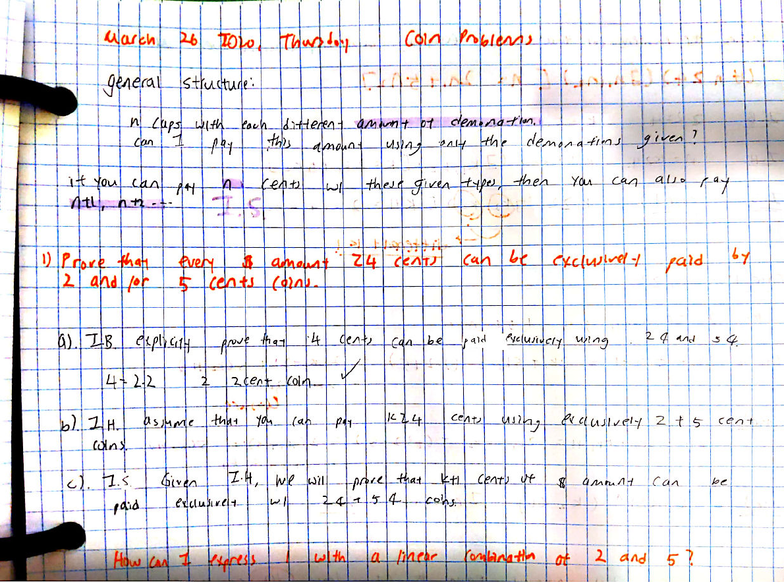 March 26 2020, Thursday Coin Problems
general structure:
n cups with each different amount of demonation.
can I pay this amount using only the demonations given?
if you can pay n cents w/ these given types, then you can also pay
n+1, n+2 ...
I.S
1) Prove that every $ amount ≥4 cents can be exclusively paid by
2 and/or 5 cents coins.
a). I.B. explicitly prove that 4 cents can be paid exclusively using 2¢ and 5¢.
4 = 2·2 2 2cent coin ✓
b). I.H. assume that you can pay k≥4 cents using exclusively 2 + 5 cent
coins.
c). I.S Given I.H, we will prove that k+1 cents of $ amount can be
paid exclusively w/ 2¢ + 5¢ coins.
How can I express 1 with a linear combination of 2 and 5?